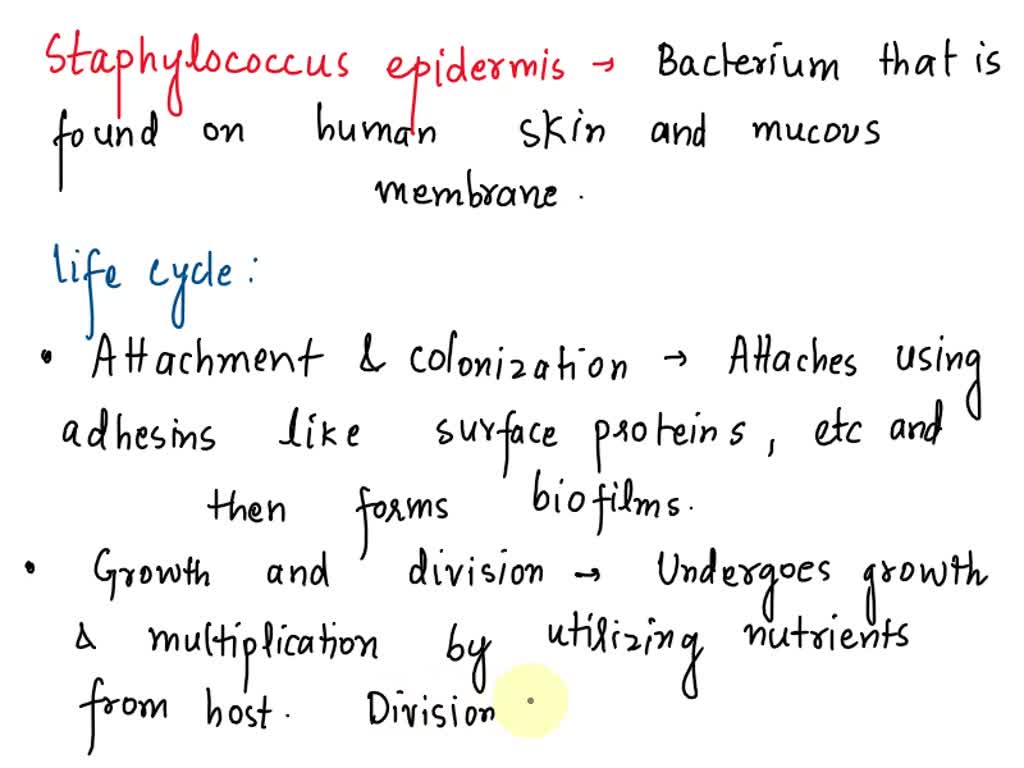 Staphylococcus epidermis → Bacterium that is
found on human skin and mucous
membrane.
life cycle:
• Attachment & colonization → Attaches using
adhesins like surface proteins, etc and
then forms biofilms.
• Growth and division → Undergoes growth
& multiplication by utilizing nutrients
from host. Division